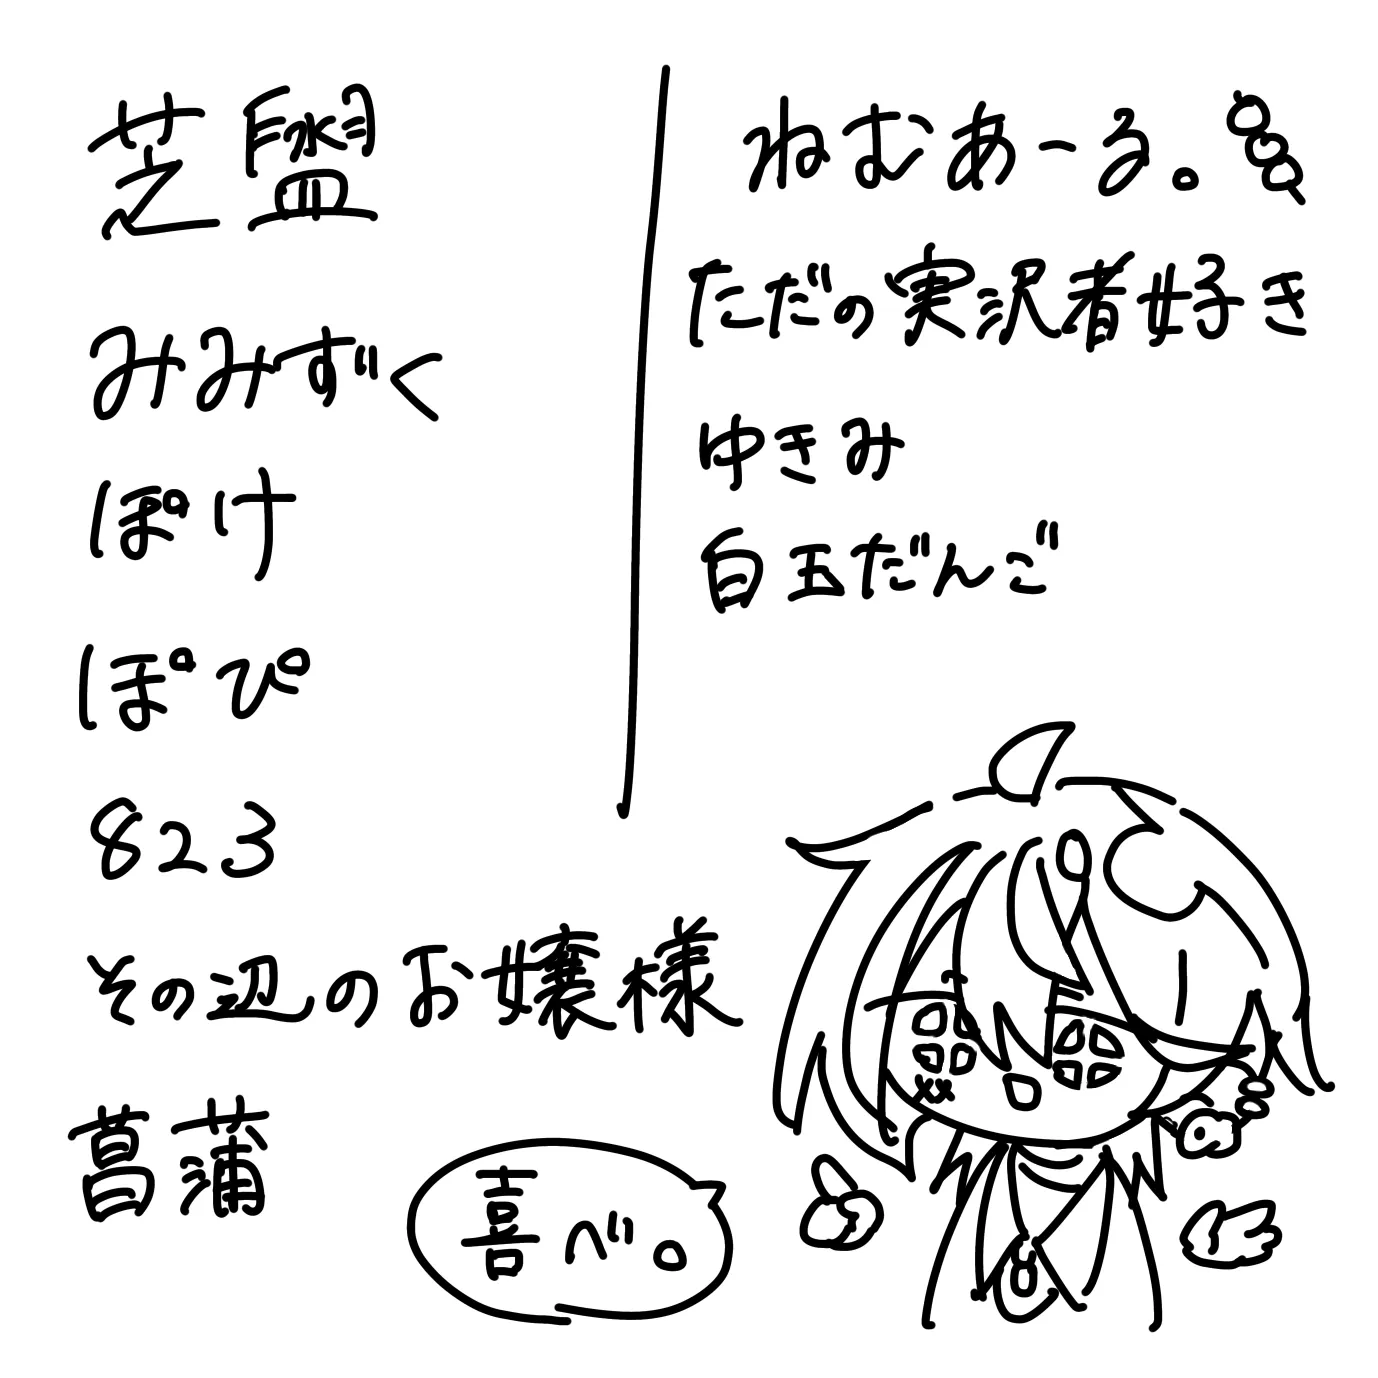 芝盥
みみずく
ぽけ
ぽぴ
823
その辺のお嬢様
菖蒲
ねむあーる。🍡
ただの実況者好き
ゆきみ
白玉だんご
喜べ。